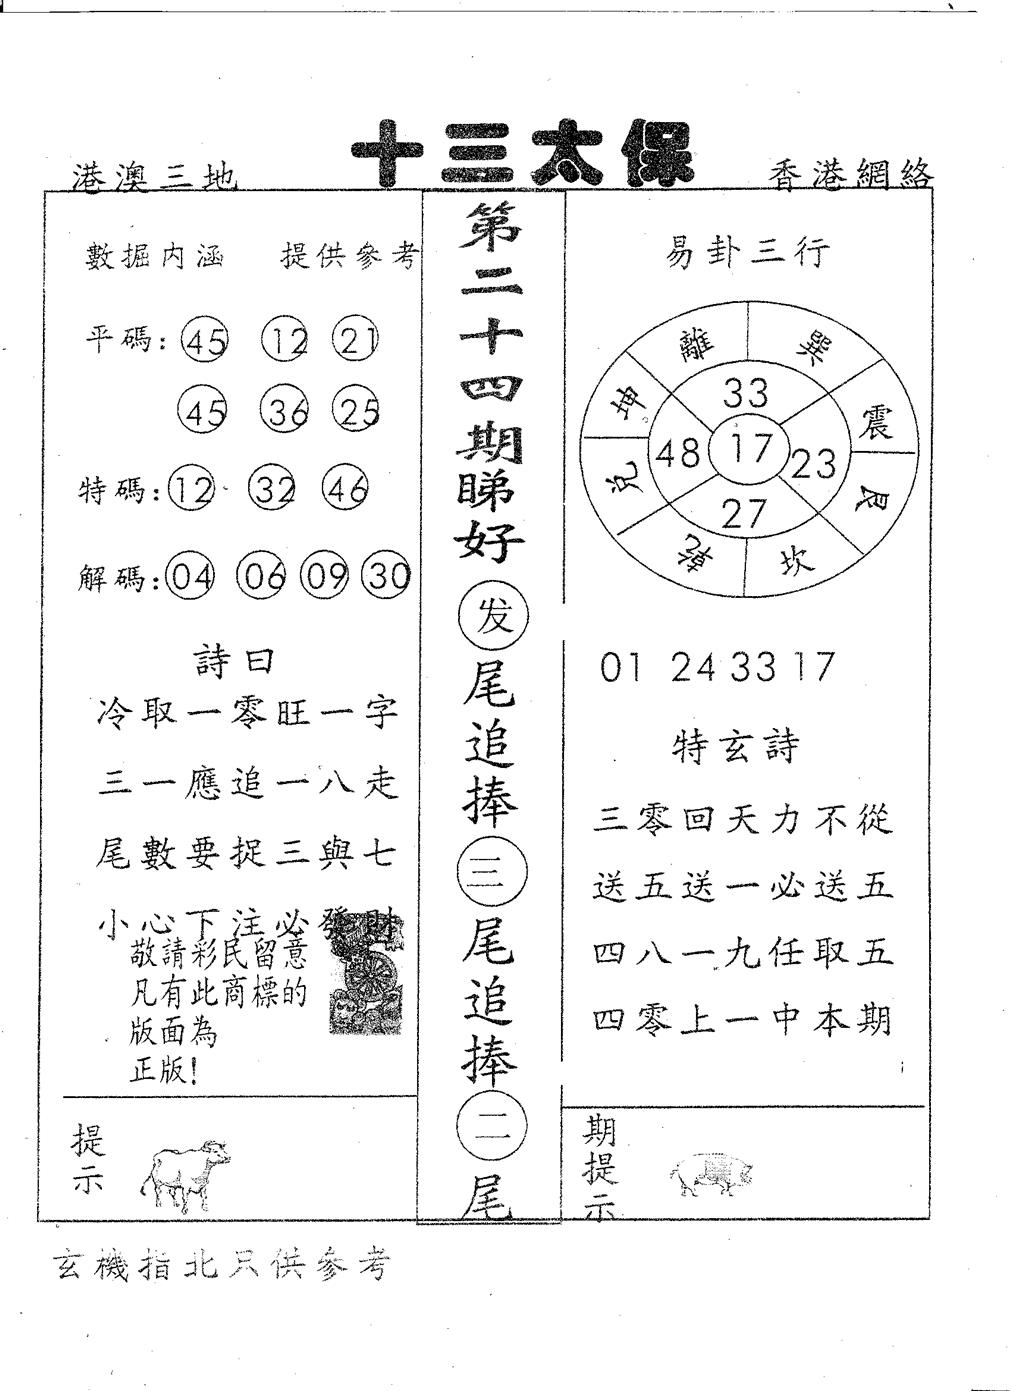 十三太保
港澳三地
香港網絡
數掘内涵 提供參考
平碼: 45 12 21
45 36 25
特碼: 12 32 46
解碼: 04 06 09 30
詩曰
冷取一零旺一字
三一應追一八走
尾數要捉三與七
小心下注必發財
敬請彩民留意
凡有此商標的
版面為
正版!
提示
第二十四期睇好发尾追捧三尾追捧二尾
易卦三行
離 巽
坤 震
兌 艮
乾 坎
33
48 17 23
27
01 24 33 17
特玄詩
三零回天力不從
送五送一必送五
四八一九任取五
四零上一中本期
期提示
玄機指北只供參考